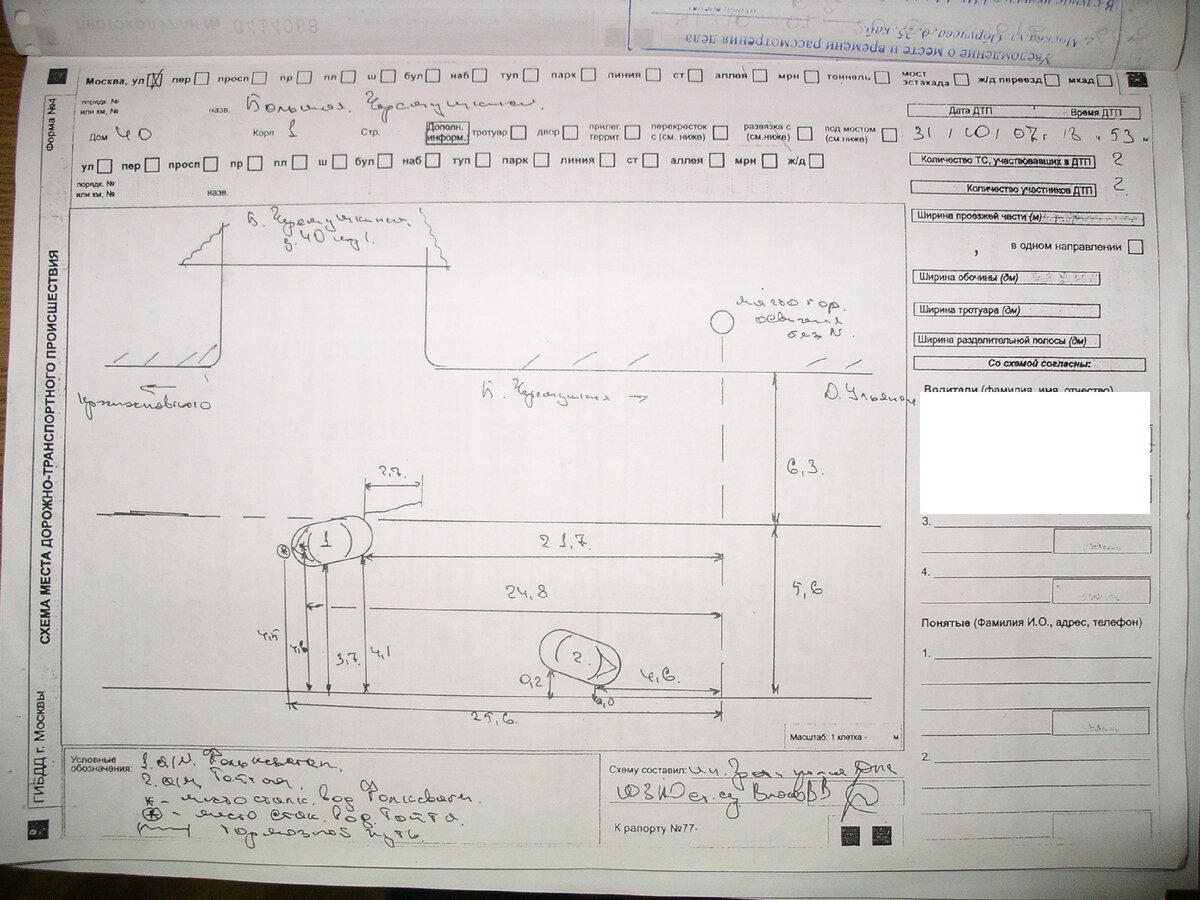 ПРОТОКОЛУТАН № 0414068
г. Москва, ул. Обручева, д. 35, каб.
Уведомление о месте и времени рассмотрения дела
Форма №4
СХЕМА МЕСТА ДОРОЖНО-ТРАНСПОРТНОГО ПРОИСШЕСТВИЯ
ГИБДД г. Москвы
Москва, ул пер просп пр пл ш бул наб туп парк линия ст аллея мрн тоннель мост эстакада ж/д переезд мкад
порядк. № или км, № назв. Большая Черемушкинская
Дом 40 Корп 1 Стр. Дополн. информ.: тротуар двор прилег. территт. перекресток с (см. ниже) развязка с (см.ниже) под мостом (см.ниже)
ул пер просп пр пл ш бул наб туп парк линия ст аллея мрн ж/д
порядк. № или км, № назв.
Дата ДТП Время ДТП
31 / 10 / 07г 18 . 53
Количество ТС, участвовавших в ДТП 2
Количество участников ДТП 2
Ширина проезжей части (м)
, в одном направлении
Ширина обочины (дм)
Ширина тротуара (дм)
Ширина разделительной полосы (дм)
Со схемой согласны:
Водители (фамилия, имя, отчество)
3.
4.
Понятые (Фамилия И.О., адрес, телефон)
1.
2.
Б. Черемушкинская
д. 40 кор 1.
мачта гор.
освещения
без N.
Кржижановского
Б. Черемушкин
Д. Ульянова
6,3
2,7
1
21,7
24,8
5,6
4,5
4,6
3,7
4,1
2
0,2
0,0
4,6
25,6
Масштаб: 1 клетка - м
Условные обозначения:
1. а/м. Фольксваген.
2. а/м Тойота.
* - место столк. вод Фольксваген.
⊛ - место столк. вод. Тойота.
тормозной путь.
Схему составил:
ЮЗАО
К рапорту №77-